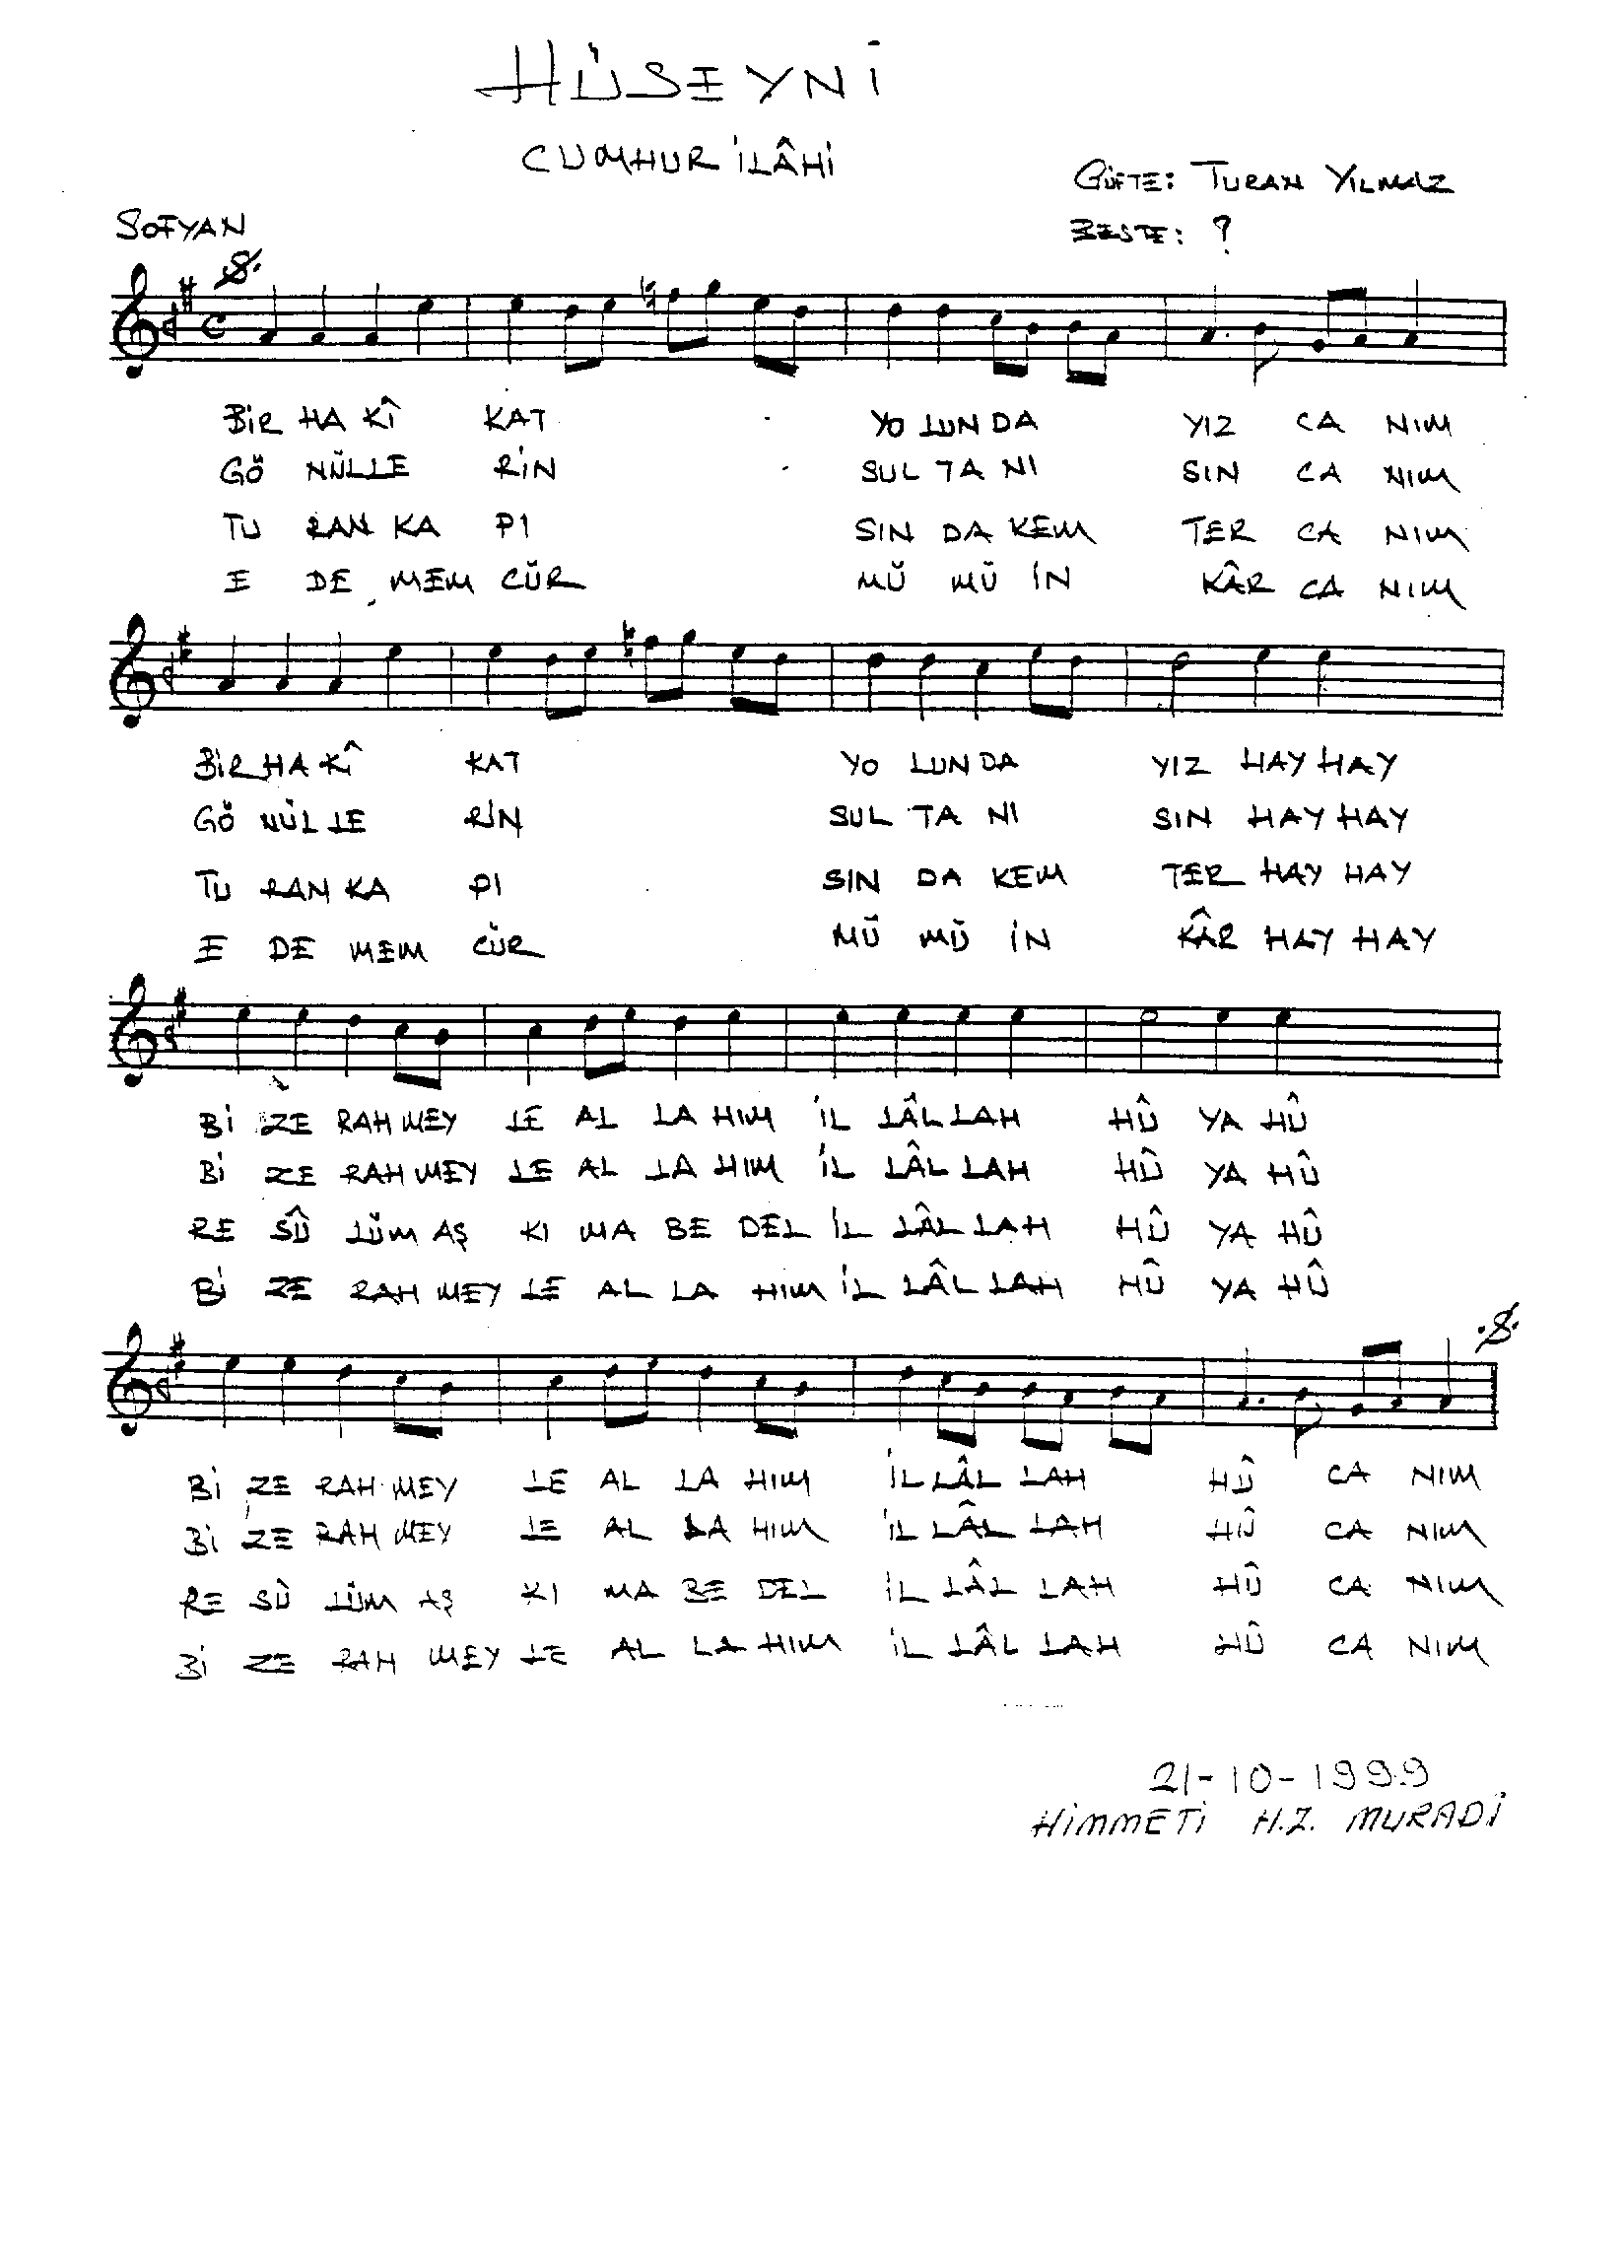 HÜSEYNİ
CUMHUR İLÂHİ
GÜFTE: TURAN YILMAZ
SOFYAN
BESTE: ?
BİR HA KÎ KAT YO LUN DA YIZ CA NIM
GÖ NÜL LE RİN SUL TA NI SIN CA NIM
TU RAN KA PI SIN DA KEM TER CA NIM
E DE MEM CÜR MÜ MÜ İN KÂR CA NIM
BİR HA KÎ KAT YO LUN DA YIZ HAY HAY
GÖ NÜL LE RİN SUL TA NI SIN HAY HAY
TU RAN KA PI SIN DA KEM TER HAY HAY
E DE MEM CÜR MÜ MÜ İN KÂR HAY HAY
Bİ ZE RAH MEY LE AL LA HIM İL LÂL LAH HÛ YA HÛ
Bİ ZE RAH MEY LE AL LA HIM İL LÂL LAH HÛ YA HÛ
RE SÛ LÜM AŞ KI MA BE DEL İL LÂL LAH HÛ YA HÛ
Bİ ZE RAH MEY LE AL LA HIM İL LÂL LAH HÛ YA HÛ
Bİ ZE RAH MEY LE AL LA HIM İL LÂL LAH HÛ CA NIM
Bİ ZE RAH MEY LE AL LA HIM İL LÂL LAH HÛ CA NIM
RE SÛ LÜM AŞ KI MA BE DEL İL LÂL LAH HÛ CA NIM
Bİ ZE RAH MEY LE AL LA HIM İL LÂL LAH HÛ CA NIM
21-10-1999
HİMMETİ H.Z. MURADİ